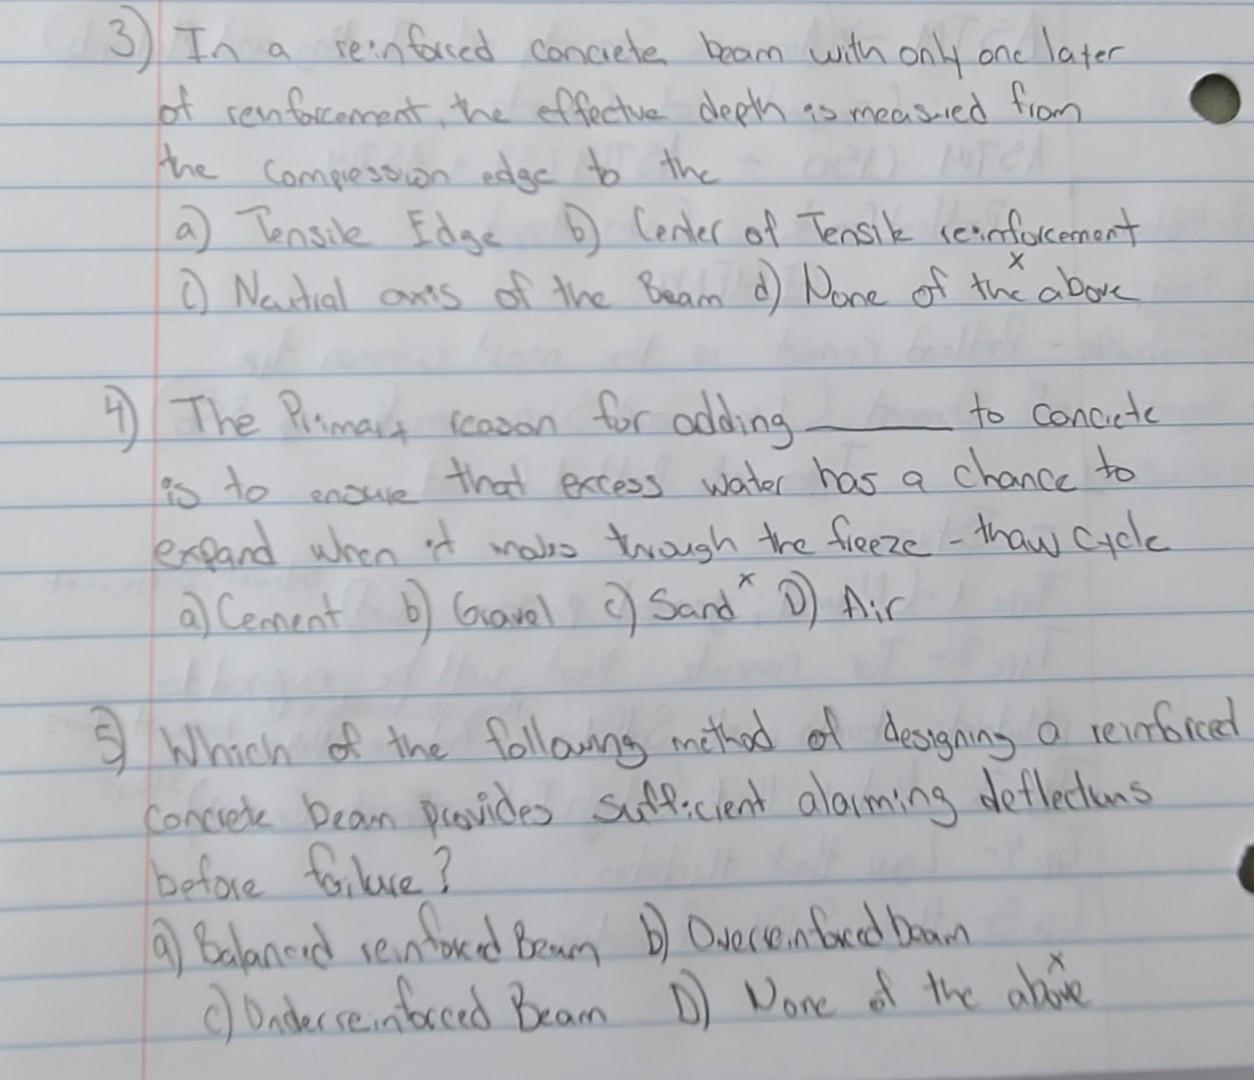 3) In a reinforced concrete beam with only one later
of reinforcement, the effective depth is measured from
the compression edge to the
a) Tensile Edge b) Center of Tensile reinforcement
c) Neutral axis of the Beam d) None of the above
x
4) The Primary reason for adding ______ to concrete
is to ensure that excess water has a chance to
expand when it makes through the freeze - thaw cycle
a) Cement b) Gravel c) Sand x D) Air
5) Which of the following method of designing a reinforced
concrete beam provides sufficient alarming deflections
before failure?
a) Balanced reinforced Beam b) Overreinforced beam
x
c) Underreinforced Beam D) None of the above